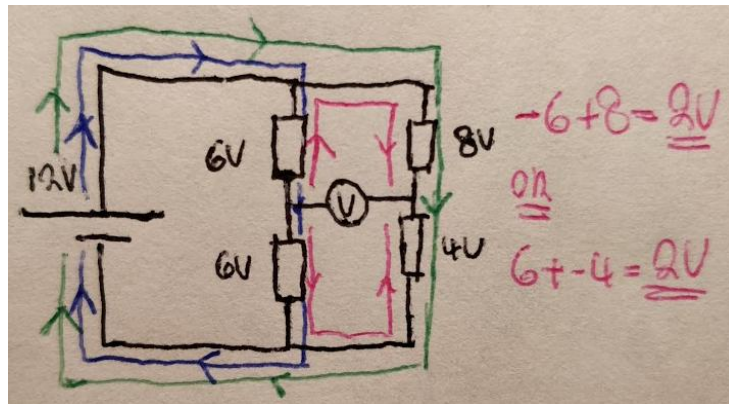 12V
6V
6V
V
8V
4V
-6+8=2V
OR
6+-4=2V